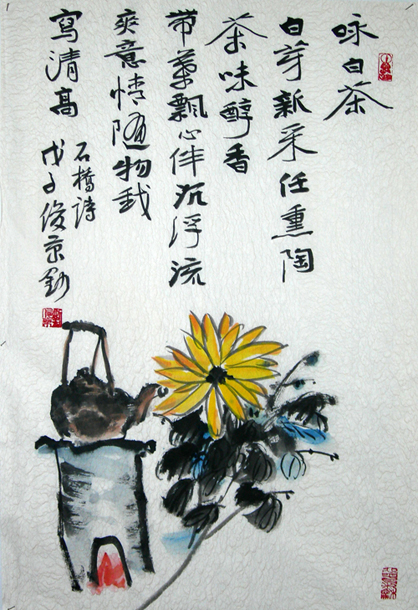 咏白茶
白芽新采任熏陶
茶味醇香
带葉飘心伴沉浮流
爽意情随物我
寫清高
石橋詩
戊子俊京